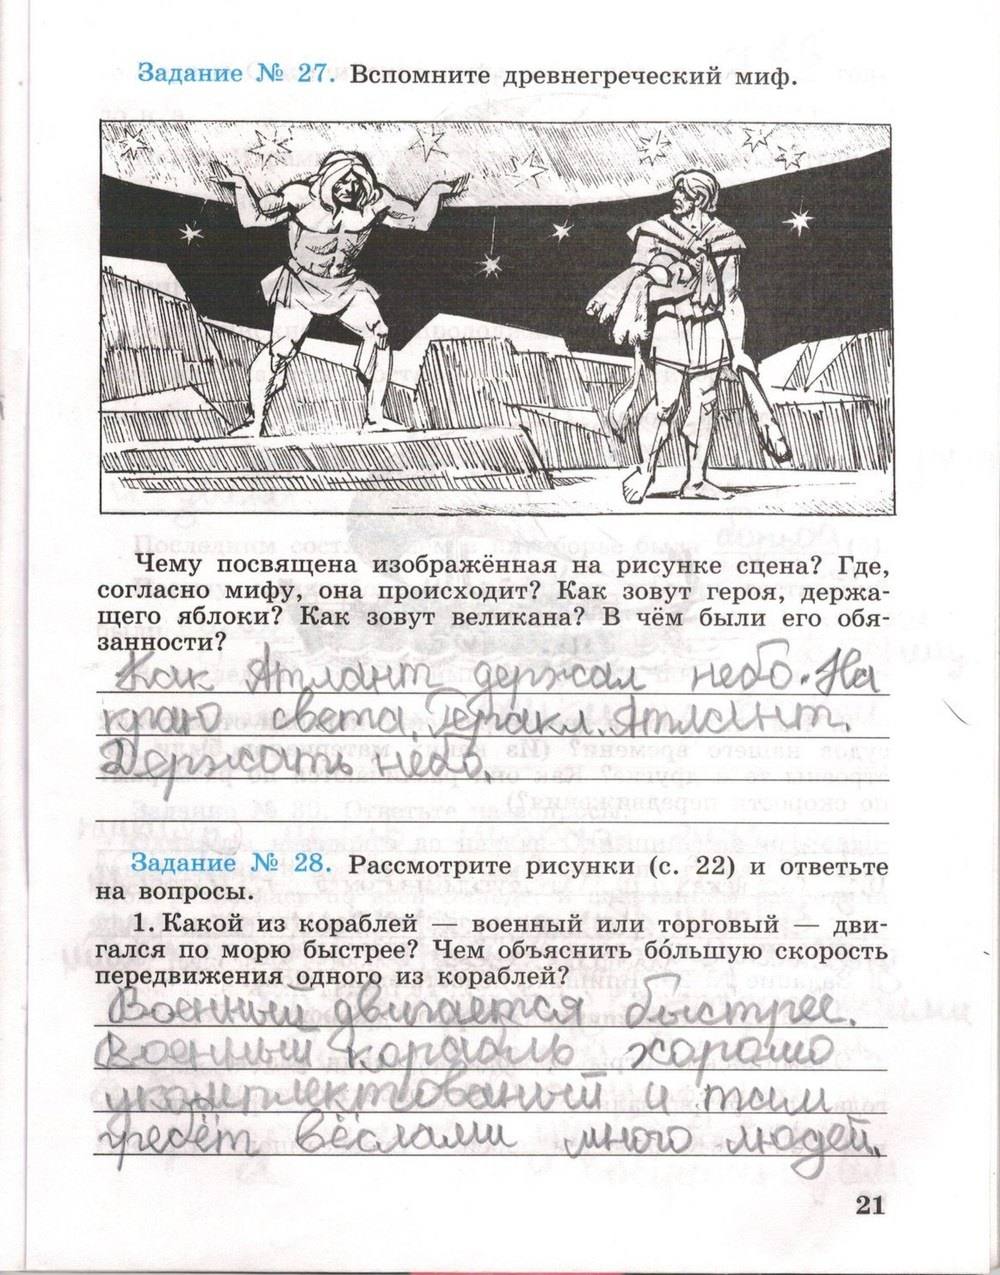 Задание № 27. Вспомните древнегреческий миф.
Чему посвящена изображённая на рисунке сцена? Где,
согласно мифу, она происходит? Как зовут героя, держа-
щего яблоки? Как зовут великана? В чём были его обя-
занности?
Как Атлант держал небо. На
краю света. Геракл. Атлант.
Держать небо.
Задание № 28. Рассмотрите рисунки (с. 22) и ответьте
на вопросы.
1. Какой из кораблей — военный или торговый — дви-
гался по морю быстрее? Чем объяснить бо́льшую скорость
передвижения одного из кораблей?
Военный двигается быстрее.
Военный корабль хорошо
укомплектованый и там
гребёт вёслами много людей.
21